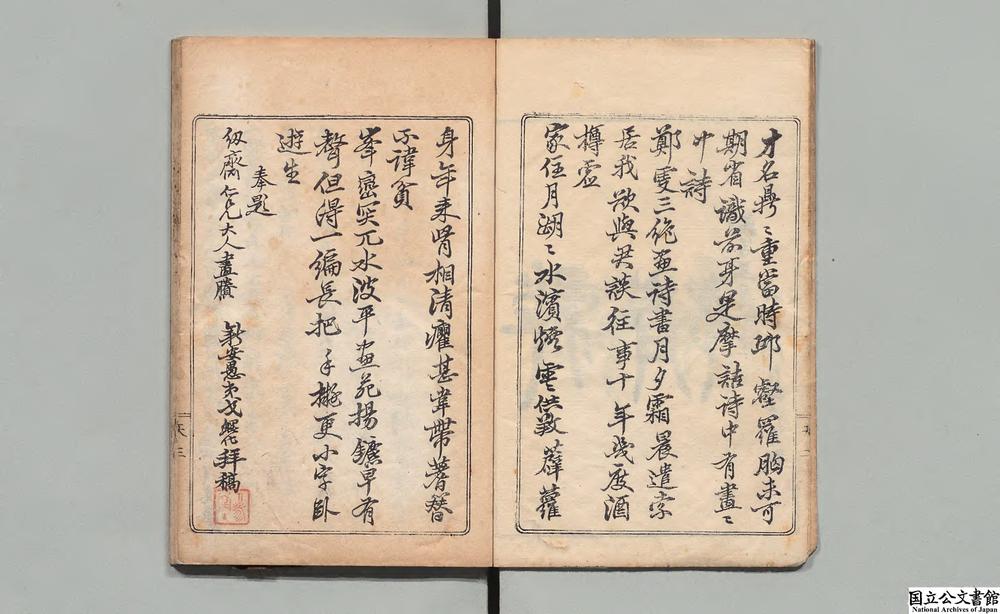 才名鼎〻重當時邱壑羅胸未可
期省識前身是摩詰诗中有畫〻
中詩
鄭虔三絶畫诗書月夕霜晨遣索
居我欲與君談往事十年幾度酒
樽虛
家住月湖〻水濱烟雲供養薜蘿
身年来骨相清癯甚韋帶蓍簪
不諱貧
峯巒突兀水波平畫苑揚鑣早有
聲但得一編長把更小字卧
遊生
奉題
齋仁兄大人畫牘
新安愚弟戈鯤化拜稿
天
三
国立公文書館
National Archives of Japan